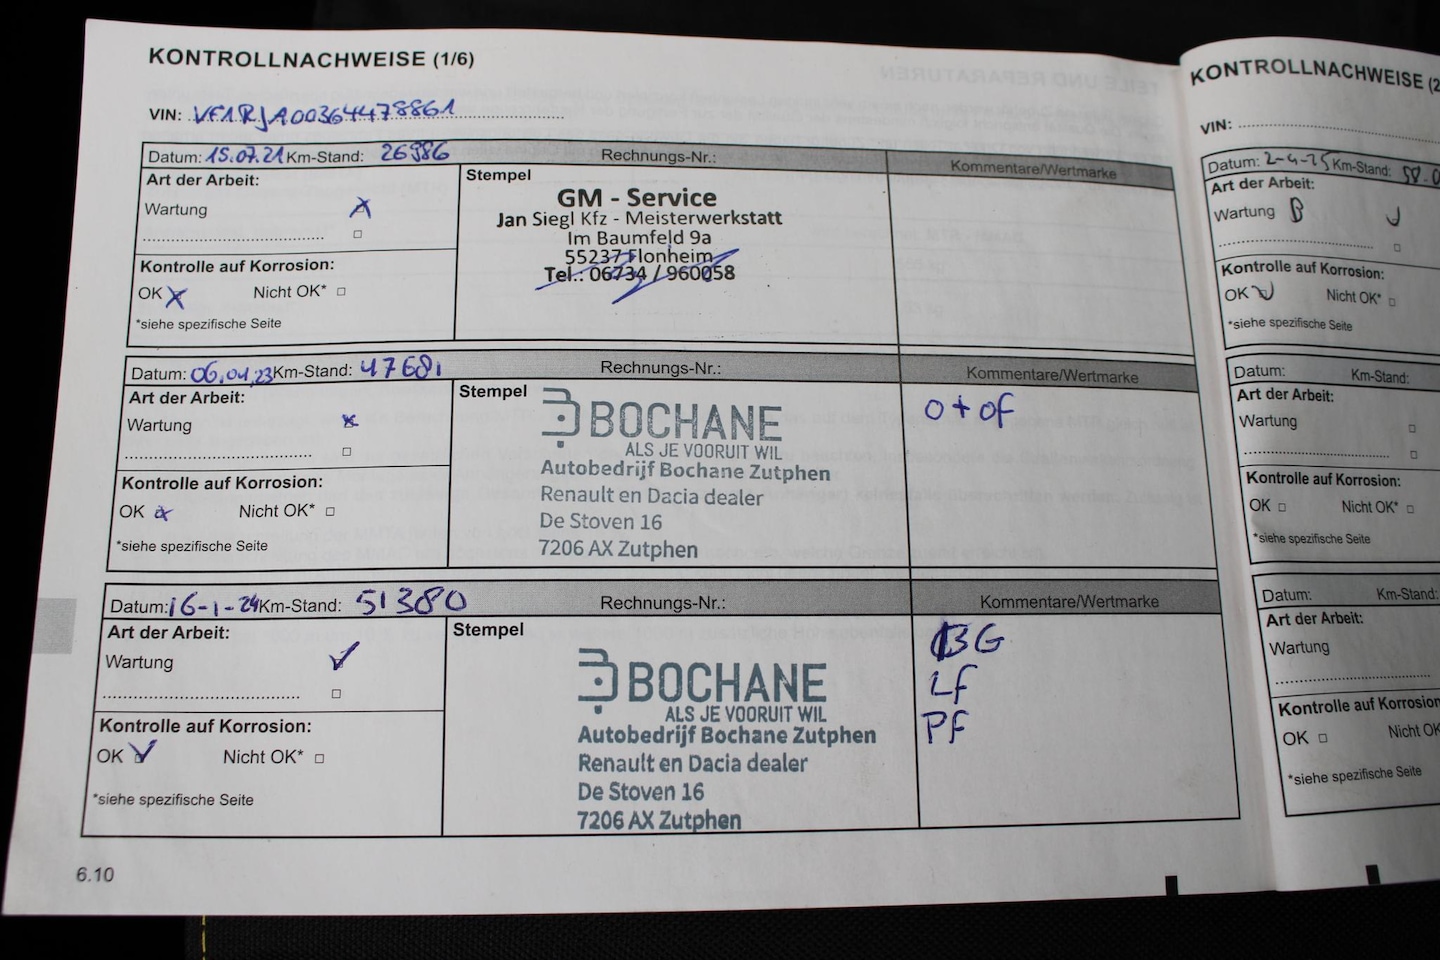 KONTROLLNACHWEISE (1/6)
VIN: VF1RJA00364478861
Datum: 15.07.21 Km-Stand: 26986 Rechnungs-Nr.: Kommentare/Wertmarke
Art der Arbeit:
Wartung
Kontrolle auf Korrosion:
OK Nicht OK*
*siehe spezifische Seite
Stempel
GM - Service
Jan Siegl Kfz - Meisterwerkstatt
Im Baumfeld 9a
55237 Flonheim
Tel.: 06734 / 960058
Datum: 06.04.23 Km-Stand: 47681 Rechnungs-Nr.: Kommentare/Wertmarke
Art der Arbeit:
Wartung
Kontrolle auf Korrosion:
OK Nicht OK*
*siehe spezifische Seite
Stempel
BOCHANE
ALS JE VOORUIT WIL
Autobedrijf Bochane Zutphen
Renault en Dacia dealer
De Stoven 16
7206 AX Zutphen
O + OF
Datum: 16-1-24 Km-Stand: 51380 Rechnungs-Nr.: Kommentare/Wertmarke
Art der Arbeit:
Wartung
Kontrolle auf Korrosion:
OK Nicht OK*
*siehe spezifische Seite
Stempel
BOCHANE
ALS JE VOORUIT WIL
Autobedrijf Bochane Zutphen
Renault en Dacia dealer
De Stoven 16
7206 AX Zutphen
BG
LF
PF
6.10
KONTROLLNACHWEISE (2
VIN:
Datum: 2-4-25 Km-Stand:
Art der Arbeit:
Wartung B
Kontrolle auf Korrosion:
OK Nicht OK*
*siehe spezifische Seite
Datum: Km-Stand:
Art der Arbeit:
Wartung
Kontrolle auf Korrosion:
OK Nicht OK*
*siehe spezifische Seite
Datum: Km-Stand:
Art der Arbeit:
Wartung
Kontrolle auf Korrosion
OK Nicht OK
*siehe spezifische Seite